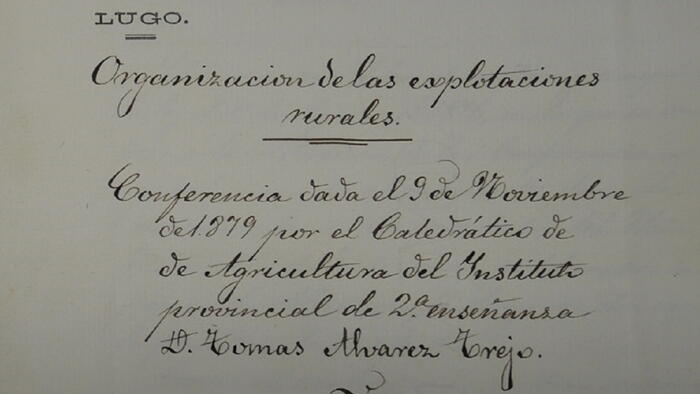 LUGO.
Organizacion de las explotaciones
rurales.
Conferencia dada el 9 de Noviembre
de 1.879 por el Catedrático de
de Agricultura del Instituto
provincial de 2.ª enseñanza
D. Tomas Alvarez Trejo.